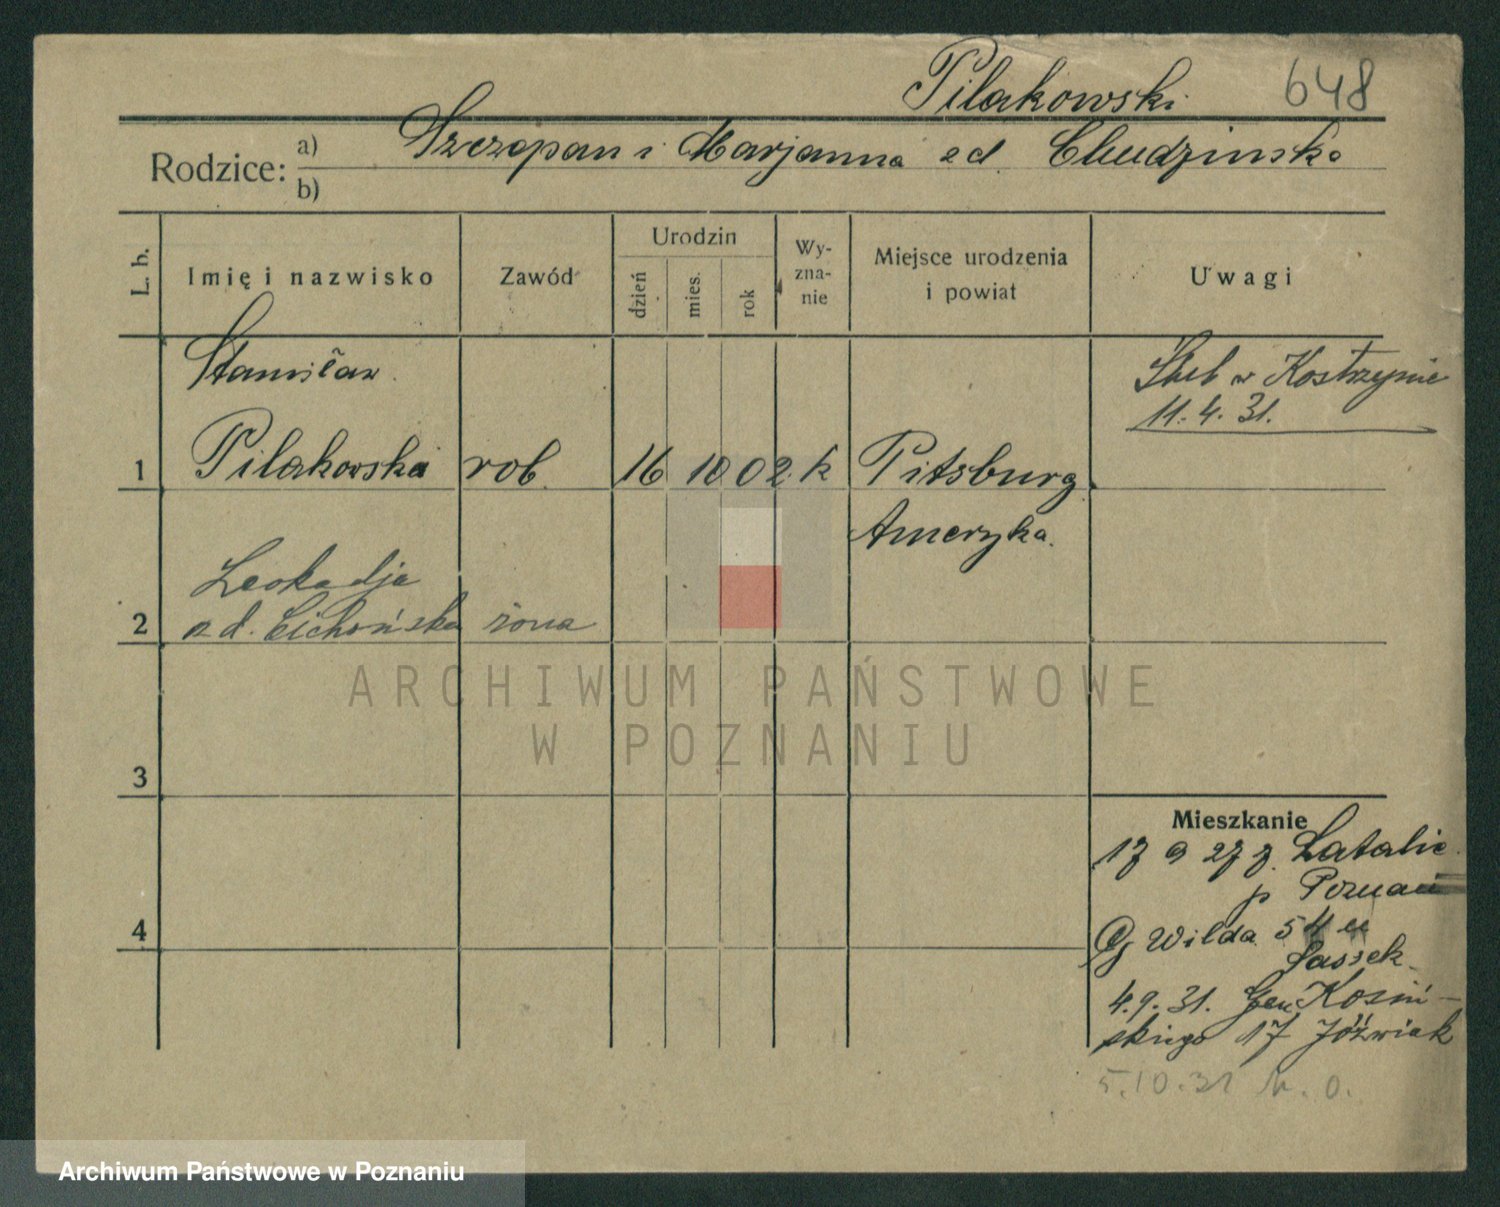 Pilakowski 648
Rodzice: a) Szczepan i Marjanna zd Chudzinska
b)
L. b. Imię i nazwisko Zawód Urodzin dzień mies. rok Wy-zna-nie Miejsce urodzenia i powiat Uwagi
Stanisław
Ślub w Kostrzynie
11.4.31.
1 Pilakowski rob. 16 10 02 k Pitsburg
Ameryka.
Leokadja
2 z d. Cichońska żona
ARCHIWUM PAŃSTWOWE
W POZNANIU
3
Mieszkanie
17 9 27 z Latalic
p Poznań
4
G Wilda 54 u
Sassek
4.9.31. Gen. Kosiń-
skiego 17 Jóźwiak
5.10.31
Archiwum Państwowe w Poznaniu